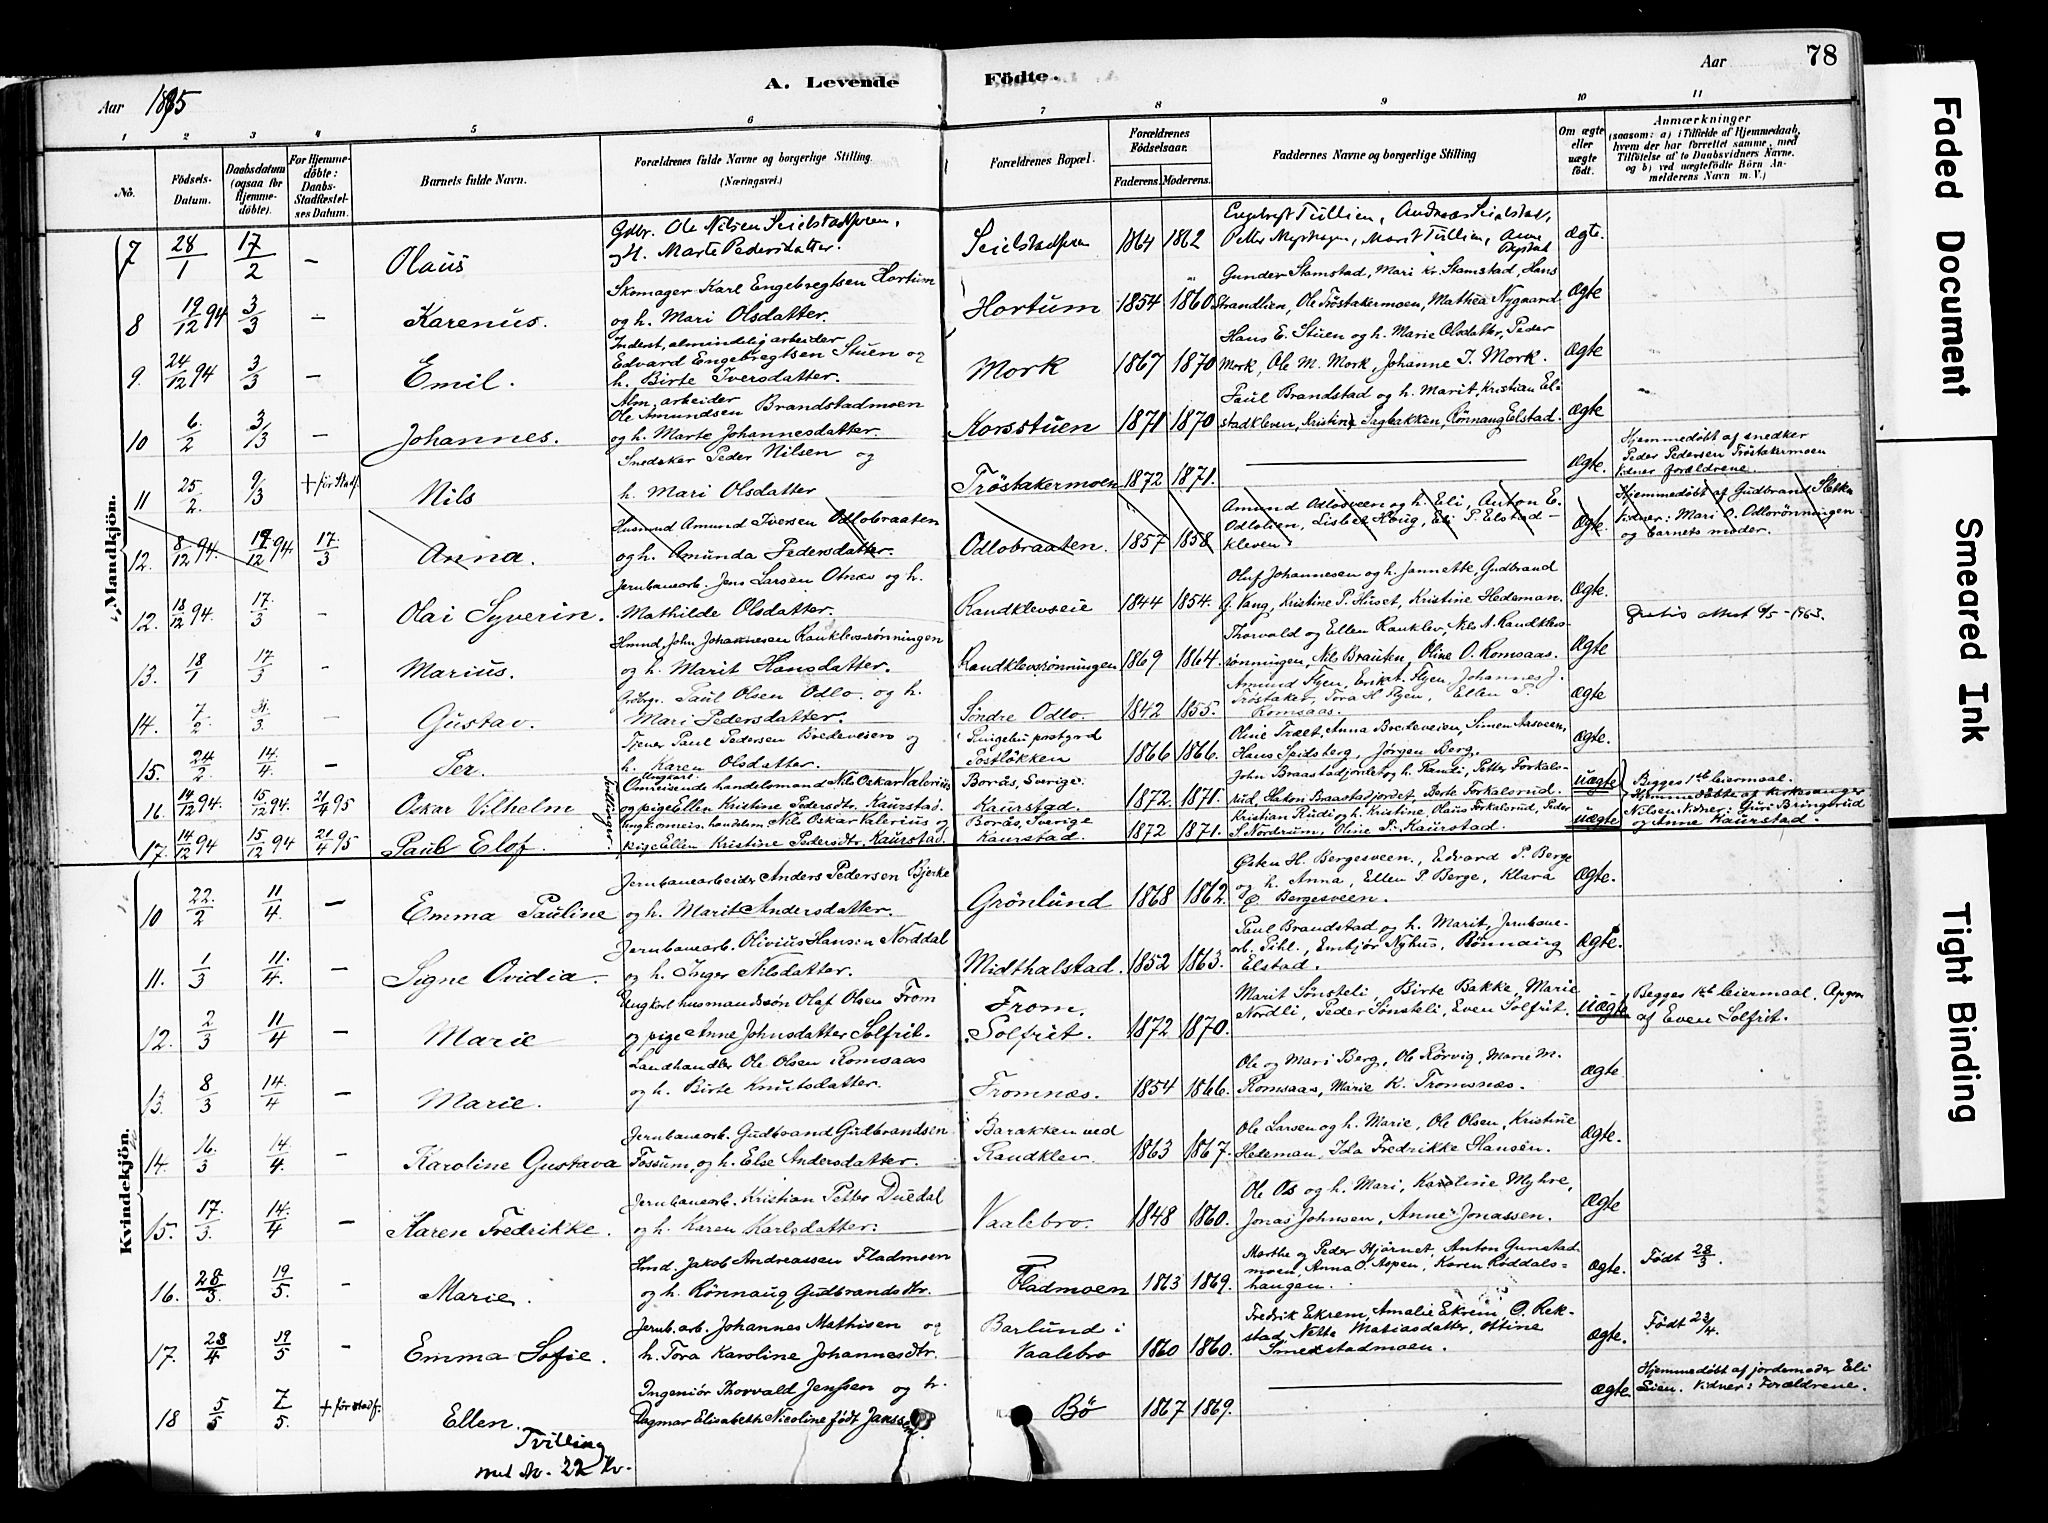 78
Aar 1895
A. Levende Födte.
Aar
1 2 3 4 5 6 7 8 9 10 11
No.
Födsels-Datum.
Daabsdatum (ogsaa for Hjemmedöbte).
For Hjemmedöbte: Daabs-Stadfæstelses Datum.
Barnets fulde Navn.
Forældrenes fulde Navne og borgerlige Stilling. (Næringsvei.)
Forældrenes Bopæl.
Forældrenes Födselsaar.
Faderens. Moderens.
Faddernes Navne og borgerlige Stilling
Om ægte eller uægte födt.
Anmærkninger
(saasom: a) i Tilfælde af Hjemmedaab, hvem der har forrettet samme, med Tilföielse af to Daabsvidners Navne, og b) ved uægtefödte Börn Anmelderens Navn m. V.)
Mandkjön.
7 28/1 17/2 — Olaus
Ole Nilsen
og h. Marte Pedersdatter.
1864 1862
Engebrigt Tullien, Andreas Seielstad,
Marit Tullien, Anne
ægte.
8 19/12 94 3/3 — Karenus.
Skomager Karl Engebregtsen Hortum
og h. Mari Olsdatter.
Hortum 1854 1860
Gunder Stamstad, Mari Kr. Stamstad, Hans
Strandlien, Ole Tröstakermoen, Mathea Nygaard
ægte
9. 24/12 94 3/3 — Emil.
Inderst, almindelig arbeider
Edvard Engebregtsen Stuen og
h. Birte Iversdatter.
Mork 1867 1870
Hans E. Stuen og h. Marie Olsdatter, Peder
Mork, Ole M. Mork, Johanne I. Mork.
ægte
10 6/2 3/3 — Johannes.
Alm. arbeider
Ole Amundsen Brandstadmoen
og h. Marte Johannesdatter.
Korsstuen 1871 1870
Paul Brandstad og h. Marit, Kristian El-
stadkleven, Kristine Sagbakken, Rönnaug Elstad.
ægte
11 25/2. 9/3 + för Stadf. Nils
Snedker Peder Nilsen og
h. Mari Olsdatter
Tröstakermoen 1872 1871.
ægte.
Hjemmedöbt af snedker
Peder Pedersen Tröstakermoen
Vidner forældrene.
12. 8/12 94. 19/12 94 17/3 Anna.
Husmnd Amund Iversen Odlobraaten
og h. Amunda Pedersdatter.
Odlobraaten. 1857 1858
Amund Odloveen og h. Eli, Anton E.
Odlolien, Lisbet Haug, Eli P. Elstad-
kleven.
ægte.
Hjemmedöbt af Gudbrand Sletten
Vidner: Mari O. Odlorönningen
og barnets moder.
12. 18/12 94. 17/3 — Olai Syverin.
Jernbanearb. Jens Larsen Otnæs og h.
Mathilde Olsdatter.
Randklevseie 1844 1854.
Oluf Johannesen og h. Jannette, Gudbrand
G. Vang, Kristine P. Huset, Kristine Hedeman.
ægte.
Gratis Attest 9/5 - 1963.
13. 18/1 17/3 — Marius.
Hmnd. John Johannesen Randklevsrønningen
og h. Marit Hansdatter.
Randklevsrønningen 1869 1864.
Thorvald og Ellen Randklev, Nils A. Randklevs-
rønningen, Nils Brauten, Oline O. Romsaas.
ægte
14. 7/2 31/3 — Gustav.
Gdbrgr. Paul Olsen Odlo. og h.
Mari Pedersdatter.
Söndre Odlo. 1842 1855.
Amund Flyen, Erik A. Flyen, Johannes J.
Tröstaker, Tora H Flyen, Ellen P.
Romsaas.
ægte
15. 24/2. 14/4. — Per.
Tjener Paul Pedersen Bredeveien og
h. Karen Olsdatter.
Ringebu postgrd
Postlökken 1866 1866.
Oline Træet, Anna Bredeveien, Simen Aasveen,
Hans Spidsberg, Jörgen Berg.
ægte.
16. 14/12 94. 15/12 94. 21/4 95 Oskar Vilhelm
Tvillinger
Ungkarl.
Omreisende handelsmand Nils Oskar Valerius
og pige Ellen Kristine Pedersdtr. Kaurstad.
Borås, Sverige.
Kaurstad. 1872. 1871.
John Braastadjordet og h. Randi, Petter Forkals-
rud, Hakon Braastadjordet, Berte Forkalsrud.
uægte
Begges 1ste leiermaal.
Hjemmedöbte af kirkesanger
Nilsen. Vidner: Guri Bringsrud
og Anne Kaurstad.
17. 14/12 94 15/12 94 21/4 95 Paul Elof.
Ungk. omreis. handelsm. Nils Oskar Valerius og
pige Ellen Kristine Pedersdtr. Kaurstad.
Borås, Sverige
Kaurstad. 1872 1871.
Kristian Rudi og h. Kristine, Olaus Forkalsrud, Peder
S. Nordrum, Oline P. Kaurstad.
uægte
Kvindekjön.
10 22./2 11/4. — Emma Pauline
Jernbanearbeider Anders Pedersen Bjerke
og h. Marit Andersdatter.
Grönlund 1868 1862.
Østen H. Bergesveen., Edvard P. Berge
og h. Anna, Ellen P. Berge, Klara
E. Bergesveen.
ægte.
11. 1/3 11./4. — Signe Ovidia.
Jernbanearb. Olivius Hansen Norddal
og h. Inger Nilsdatter.
Midthalstad. 1852 1863.
Paul Brandstad og h. Marit, Jernbane-
arb. Pihl., Embjör Nyhus, Rönnaug
Elstad.
ægte.
12. 2/3 11/4 — Marie
Ungkarl husmandssön Olaf Olsen From
og pige Anne Johnsdatter Solfrit.
From.
Solfrit. 1872 1870.
Marit Sönsteli, Birte Bakke, Marie
Nordli, Peder Sönsteli, Even Solfrit.
uægte
Begges 1ste leiermaal. Opgivet
af Even Solfrit.
13. 8/3 14./4 — Marie.
Landhandler Ole Olsen Romsaas
og h. Birte Knutsdatter.
Fromnæs. 1854 1866.
Ole og Mari Berg, Ole Rörvig, Marie M.
Romsaas, Marie K. Tromsnæs.
ægte
14. 16./3 14./4. — Karoline Gustava
Jernbanearb. Gudbrand Gudbrandsen
Fossum, og h. Else Andersdatter.
Barakken ved
Randklev. 1863 1867.
Ole Larsen og h. Marie, Ole Olsen, Kristine
Hedeman, Ida Fredrikke Hansen.
ægte.
15. 17./3. 14./4 — Karen Fredrikke.
Jernbanearb. Kristian Petter Duedal
og h. Karen Karlsdatter.
Vaalebro. 1848 1860.
Ole Os og h. Mari, Karoline Myhre,
Jonas Johnsen, Anne Jonassen.
ægte
16. 28/3. 19/5. — Marie.
Hmd. Jakob Andreassen Fladmoen
og h. Rönnaug Gudbrandsdtr.
Fladmoen 1863 1869.
Marthe og Peder Hjörnet, Anton Gunstad-
moen, Anna O. Aspen, Karen Röddals-
haugen.
ægte.
Födt 23/3.
17. 28/4 19/5 — Emma Sofie.
Jernb. arb. Johannes Mathisen og
h. Tora Karoline Johannesdtr.
Barlund i
Vaalebro 1860 1860.
Fredrik Ekrem, Amalie Ekrem, O. Rek-
stad, Nette Matiasdatter, Ottine
Smedstadmoen.
ægte.
Födt 23/4.
18 5/5 7/5. + för stadf. Ellen.
Ingeniör Thorvald Jenssen og h.
Dagmar Elisabeth Nicoline født Janssen.
Bö 1867 1869.
ægte.
Hjemmedöbt af jordemoder Eli
Lien. Vidner: Forældrene.
Tvilling
med No. 22 Kv.
Faded Document
Smeared Ink
Tight Binding